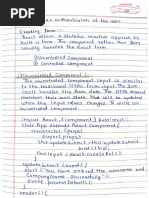 authentication of the user.
Creating Form:-
React offers a stateful, reactive approach to
build a form. The component rather than DOM
usually handles the React form.
① Uncontrolled Component
② Controlled Component
① Uncontrolled Component :-
The uncontrolled component input is similar
to the traditional HTML form input. The DOM
itself handles the form data. Here, the HTML
elements maintain their own state that will be updated
when the input value changes. To write an
uncontrolled component
import React, { Component } from 'react';
class App extends React.Component {
constructor (props) {
super (props);
this.updateSubmit = this.updateSubmit.
bind (this);
this.input = React.createRef();
}
updateSubmit (event) {
alert ('You have entered the username and
CompanyName successfully.');
event.preventDefault();
}
render() {